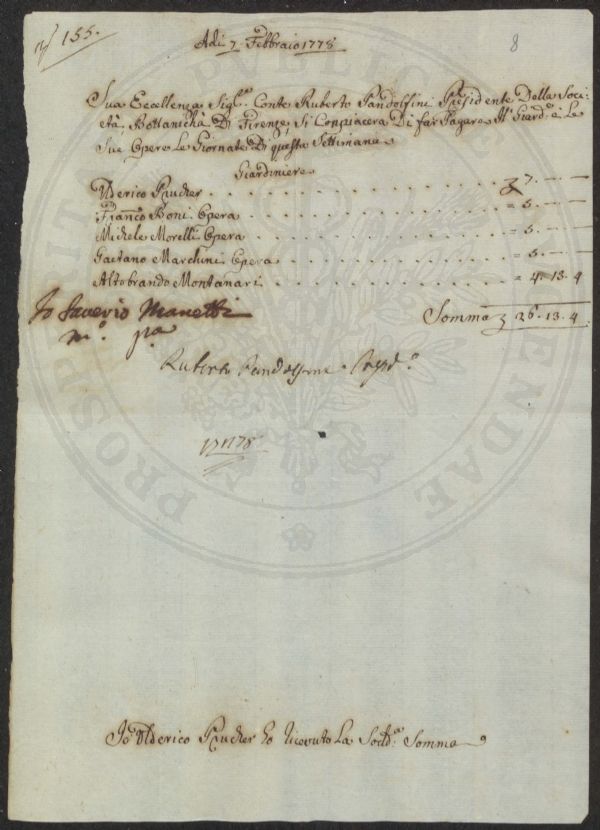 N° 155.
8
Adi 7 Febbraio 1778
Sua Eccellenza Sigre. Conte Ruberto Pandolfini Presidente Della Soci=
età Bottanicha Di Firenze Si Conpiacera Di far Pagare Al Giard.e e Le
Sue Opere Le Giornate Di questa Settimana
Giardiniere
Ulderico Prucher - - - - 7 - -
Franco Boni Opera - - - - = 5 - -
Michele Morelli Opera - - - - = 5 - -
Gaetano Marchini Opera - - - - = 5 - -
Altobrando Montanari - - - - = 4. 13. 4
Somma 26. 13. 4
Io Saverio Manetti
mo. pa
Ruberto Pandolfini Presid.e
Io Ulderico Prucher ho ricevuto La Sodd.a Somma
PROSPERITATI PVBLICAE AVGENDAE